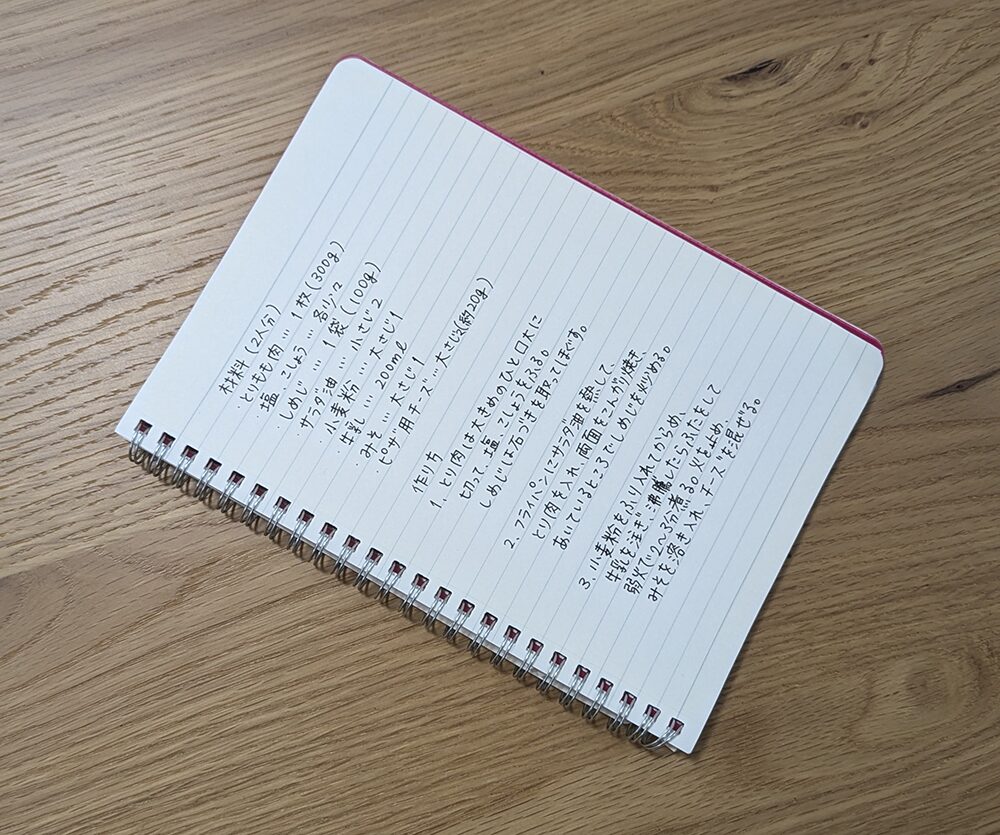 材料(2人分)
・とりもも肉…1枚(300g)
塩、こしょう…各少々
・しめじ…1袋(100g)
サラダ油…小さじ2
・小麦粉…大さじ1
牛乳…200ml
・みそ…大さじ1
ピザ用チーズ…大さじ2(約20g)
作り方
1. とり肉は大きめのひと口大に
切って、塩、こしょうをふる。
しめじは石づきを取ってほぐす。
2. フライパンにサラダ油を熱して、
とり肉を入れ、両面をこんがり焼き、
あいているところでしめじを炒める。
3. 小麦粉をふり入れてからめ、
牛乳を注ぎ、沸騰したらふたをして
弱火で2〜3分煮る。火を止め
みそを溶き入れ、チーズを混ぜる。